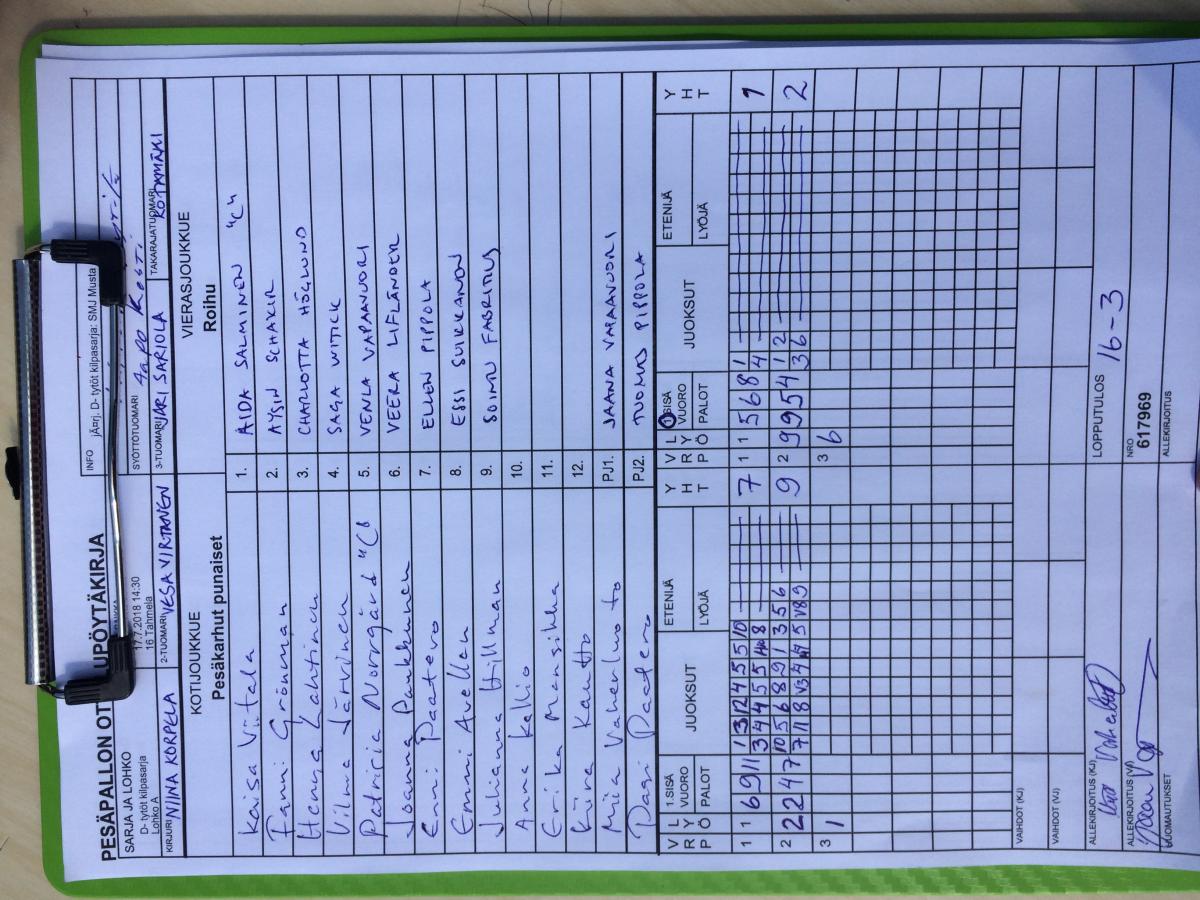 PESÄPALLON OT UPÖYTÄKIRJA
SARJA JA LOHKO
D- tytöt kilpasarja
Lohko A
17.7.2018 14:30
16 Tahmela
INFO
jÄ¤rj. D- tytöt kilpasarja: SMJ Musta
SYÖTTÖTUOMARI
KIRJURI NIINA KORPELA
2-TUOMARI VESA VIRTANEN
3-TUOMARI JARI SARIOLA
TAKARAJATUOMARI
KOTIJOUKKUE
Pesäkarhut punaiset
VIERASJOUKKUE
Roihu
Kaisa Viitala
1. AIDA SALMINEN "C"
Fanni Grönman
2. AYSIN SCHAKIR
Henna Kahtinen
3. CHARLOTTA HÖGLUND
Vilma Järvinen
4. SAGA WITICK
Patrisia Norrgård "C"
5. VENLA VAPAAVUORI
Joanna Pankkunen
6. VEERA LIFLÄNDER
Enni Paatero
7. ELLEN PIPPOLA
Emmi Avellan
8. ESSI SUIKKANEN
Julianna Hillman
9. SOINU FABRITIUS
Anna Kallio
10.
Erika Mansikka
11.
Kiira Kautto
12.
Mia Vaherluoto
PJ1. JAANA VAPAAVUORI
Pasi Paatero
PJ2. TUOMAS PIPPOLA
V R P
L Y Ö
1.SISÄ VUORO
PALOT
JUOKSUT
ETENIJÄ
LYÖJÄ
Y H T
V R P
L Y Ö
1 SISÄ VUORO
PALOT
JUOKSUT
ETENIJÄ
LYÖJÄ
Y H T
1 1 6 9 11
1 3 12 4 5 5 10
7
1 1 5 6 8
1
4
1
2 2 2 4 7
10 5 6 8 9 1 3 5 6
9
2 9 9 5 4
1 2
3 6
2
3 1
3 6
VAIHDOT (KJ)
VAIHDOT (VJ)
ALLEKIRJOITUS (KJ)
LOPPUTULOS 16-3
ALLEKIRJOITUS (VJ)
NRO
617969
HUOMAUTUKSET
ALLEKIRJOITUS